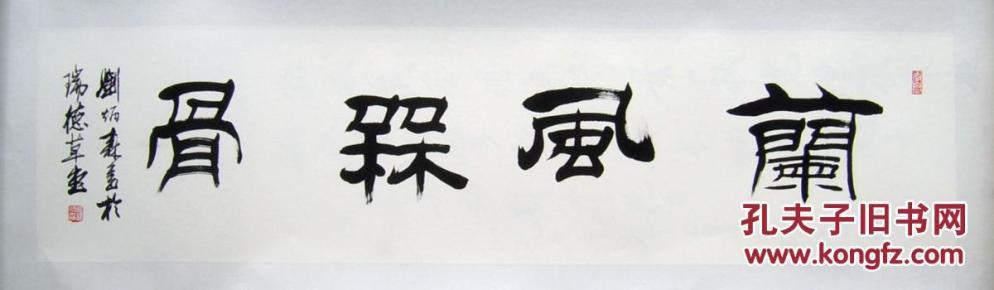 蘭風槑骨
劉炳森書於
瑞德草堂
孔夫子旧书网
www.kongfz.com